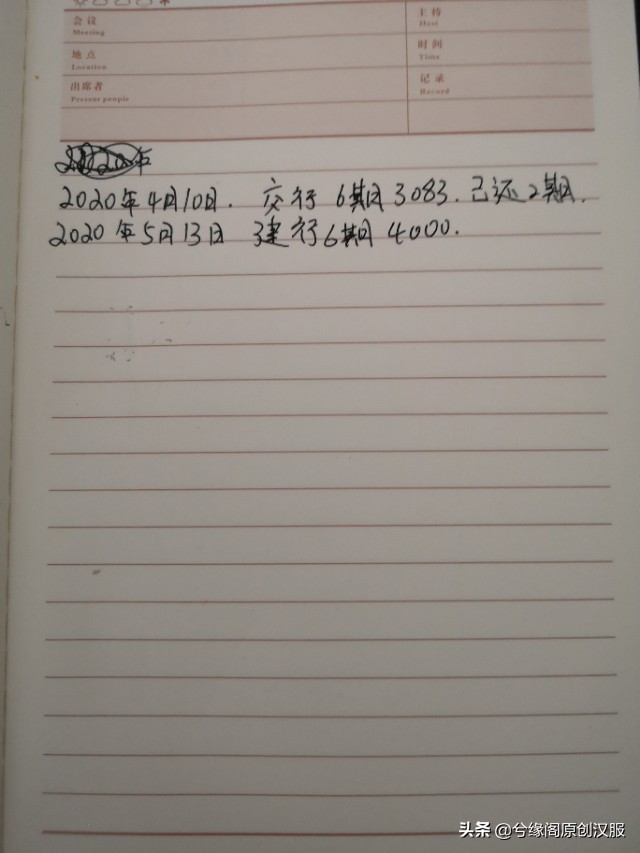 会议 主持
Meeting Host
地点 时间
Location Time
出席者 记录
Present people Record
2020年
2020年4月10日. 交行 6期 3083. 已还2期.
2020年5月13日 建行6期 4000.
头条 @兮缘阁原创汉服